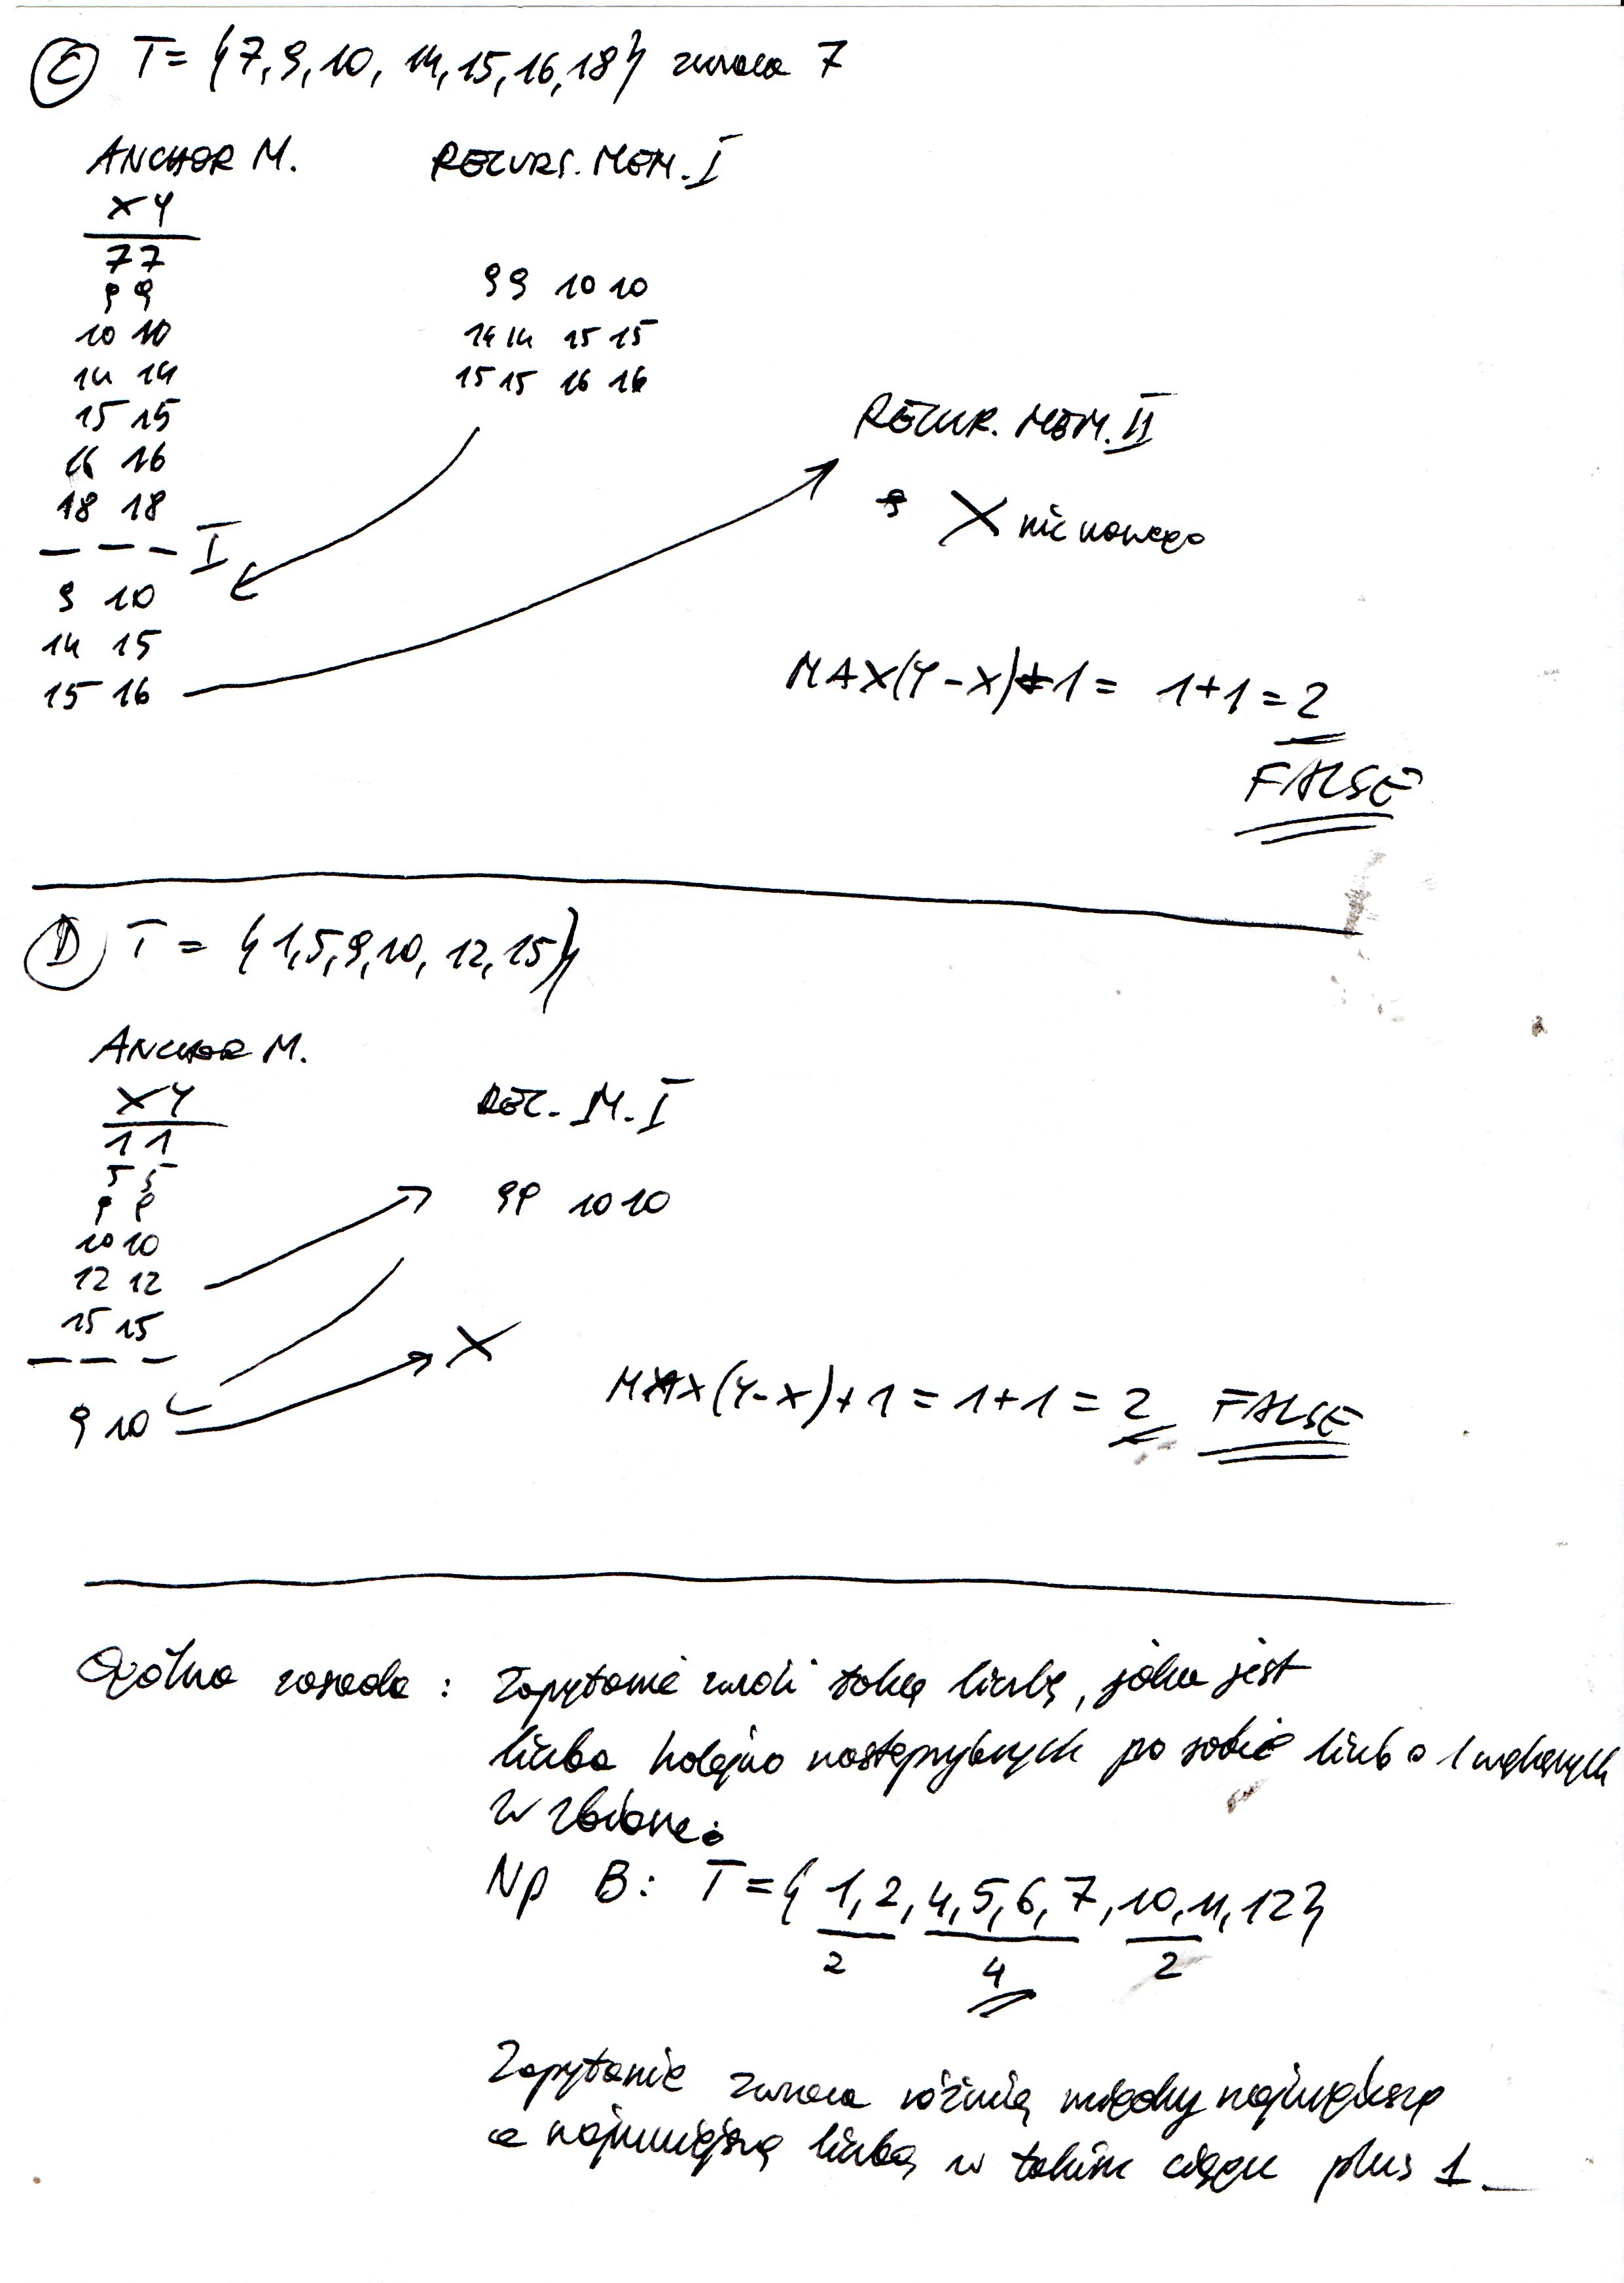 C T = {7, 9, 10, 14, 15, 16, 18} zwraca 7
ANCHOR M.
X Y
7 7
9 9
10 10
14 14
15 15
16 16
18 18
I
9 10
14 15
15 16
RECURS. MEM. I
9 9 10 10
14 14 15 15
15 15 16 16
RECUR. MEM. II
X nic nowego
MAX(Y-X)+1 = 1+1 = 2
FALSE
D T = {1, 5, 9, 10, 12, 15}
ANCHOR M.
X Y
1 1
5 5
9 9
10 10
12 12
15 15
9 10
REC. M. I
9 9 10 10
X
MAX(Y-X)+1 = 1+1 = 2 FALSE
Ogólna zasada: Zapytanie zwróci taką liczbę, jaka jest
liczba kolejno następnych po sobie liczb o 1 większych
w zbiorze.
Np B: T = {1, 2, 4, 5, 6, 7, 10, 11, 12}
2 4 2
Zapytanie zwraca różnicę między największą
a najmniejszą liczbą w takim ciągu plus 1